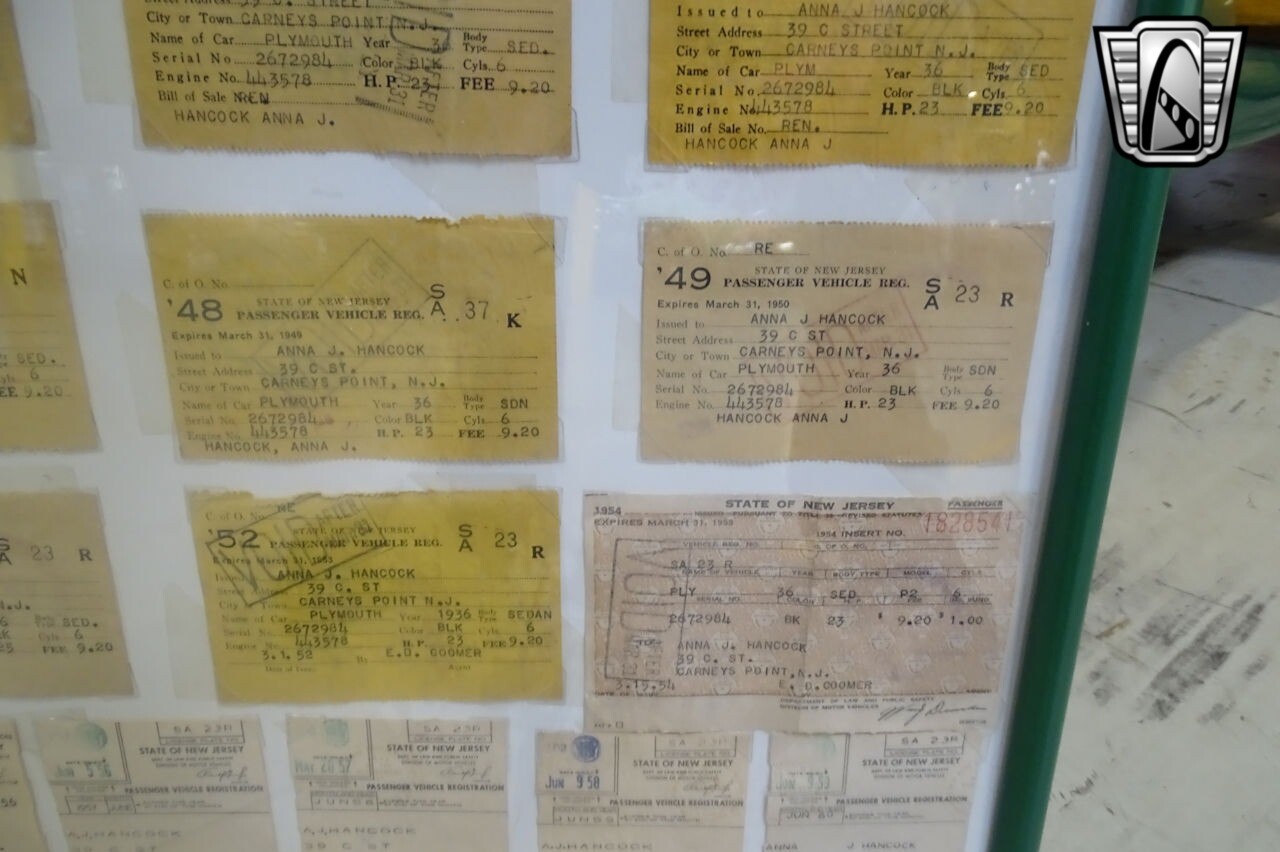 City or Town CARNEYS POINT N.J.
Name of Car PLYMOUTH Year 36 Body Type SED.
Serial No 2672984 Color BLK Cyls. 6
Engine No. 443578 H.P. 23 FEE 9.20
Bill of Sale No. REN
HANCOCK ANNA J.
Issued to ANNA J HANCOCK
Street Address 39 C STREET
City or Town CARNEYS POINT N.J.
Name of Car PLYM Year 36 Body Type SED
Serial No. 2672984 Color BLK Cyls. 6
Engine No. 443578 H.P. 23 FEE 9.20
Bill of Sale No. REN.
HANCOCK ANNA J
N
SED.
6
9.20
C. of O. No.
'48 STATE OF NEW JERSEY
PASSENGER VEHICLE REG. SA 37 K
Expires March 31, 1949
Issued to ANNA J. HANCOCK
Street Address 39 C ST.
City or Town CARNEYS POINT, N.J.
Name of Car PLYMOUTH Year 36 Body Type SDN
Serial No. 2672984 Color BLK Cyls. 6
Engine No. 443578 H.P. 23 FEE 9.20
HANCOCK, ANNA J.
C. of O. No. RE
'49 STATE OF NEW JERSEY
PASSENGER VEHICLE REG. SA 23 R
Expires March 31, 1950
Issued to ANNA J HANCOCK
Street Address 39 C ST
City or Town CARNEYS POINT, N.J.
Name of Car PLYMOUTH Year 36 Body Type SDN
Serial No. 2672984 Color BLK Cyls. 6
Engine No. 443578 H.P. 23 FEE 9.20
HANCOCK ANNA J
SA 23 R
SED.
Cyls. 6
FEE 9.20
C. of O. No.
'52 STATE OF NEW JERSEY
PASSENGER VEHICLE REG. SA 23 R
Expires March 31, 1953
ANNA J. HANCOCK
39 C. ST
City or Town CARNEYS POINT N.J.
Name of Car PLYMOUTH Year 1936 Body Type SEDAN
Serial No. 2672984 Color BLK Cyls. 6
Engine No. 443578 H.P. 23 FEE 9.20
3.1.52 By E.D. COOMER
Agent
1954 STATE OF NEW JERSEY PASSENGER
EXPIRES MARCH 31, 1955
1828541
1954 INSERT NO.
VEHICLE REG. NO.
SA 23 R
NAME OF VEHICLE YEAR BODY TYPE MODEL CYLS.
PLY 36 SED P2 6
SERIAL NO. COLOR
2672984 BK 23 $ 9.20 $ 1.00
ANNA J. HANCOCK
39 C. ST.
CARNEYS POINT, N.J.
3.15.54 E. D. COOMER
DEPARTMENT OF LAW AND PUBLIC SAFETY
DIVISION OF MOTOR VEHICLES
SA 23R
LICENSE PLATE NO.
STATE OF NEW JERSEY
PASSENGER VEHICLE REGISTRATION
A.J.HANCOCK
39 C ST
SA 23R
LICENSE PLATE NO.
STATE OF NEW JERSEY
PASSENGER VEHICLE REGISTRATION
A.J.HANCOCK
39 C ST
SA 23R
LICENSE PLATE NO.
STATE OF NEW JERSEY
JUN 9 58
PASSENGER VEHICLE REGISTRATION
JUN59
A.J.HANCOCK
SA 23R
LICENSE PLATE NO.
STATE OF NEW JERSEY
PASSENGER VEHICLE REGISTRATION
JUN 60
ANNA J HANCOCK